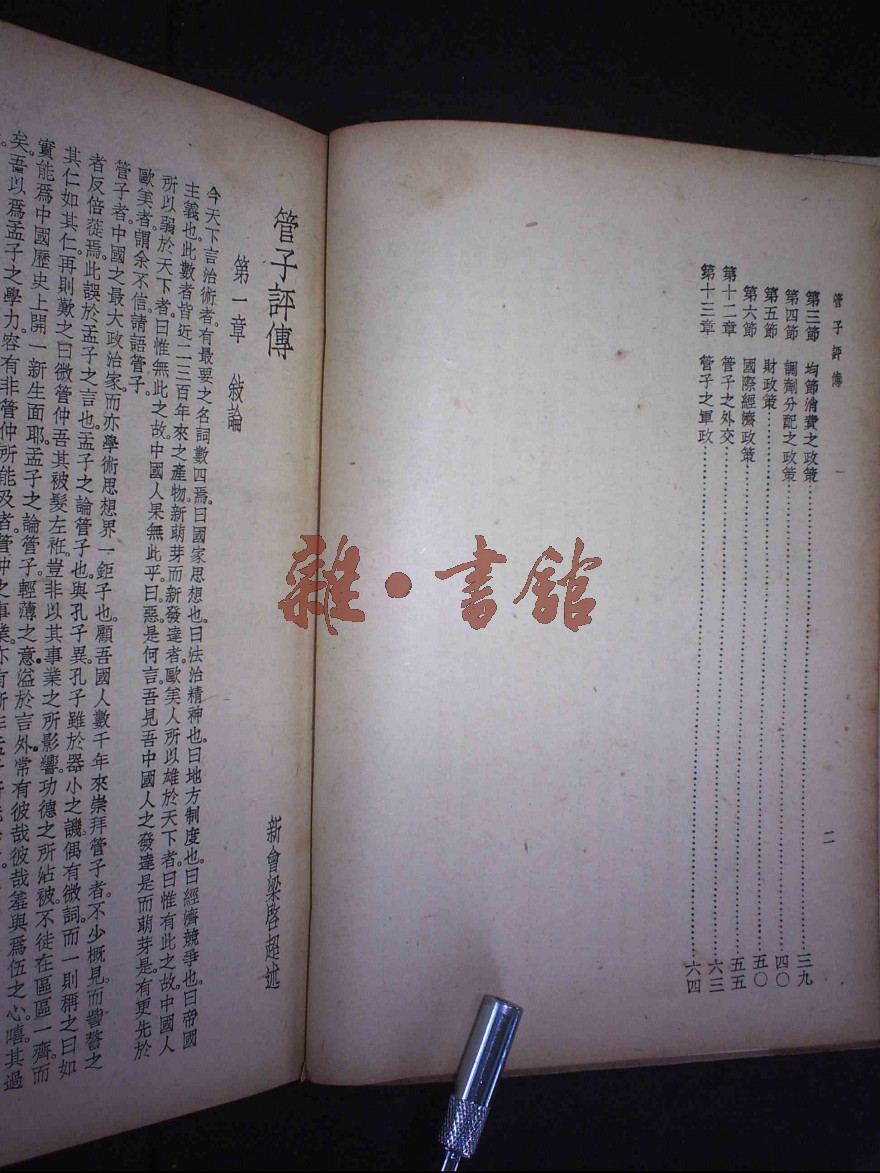 管子評傳
二
第三節　均節消費之政策……三九
第四節　調劑分配之政策……四〇
第五節　財政策……五〇
第六節　國際經濟政策……五五
第十二章　管子之外交……六三
第十三章　管子之軍政……六四
管子評傳
新會梁啓超述
第一章　敍論
今天下言治術者。有最要之名詞數四焉。曰國家思想也。曰法治精神也。曰地方制度也。曰經濟競爭也。曰帝國
主義也。此數者皆近二三百年來之產物。新萌芽而新發達者。歐美人所以雄於天下者。曰惟有此之故。中國人
所以弱於天下者。曰惟無此之故。中國人果無此乎。曰。惡。是何言。吾見吾中國人之發達是而萌芽是。有更先於
歐美者。謂余不信。請語管子。
管子者。中國之最大政治家。而亦學術思想界一鉅子也。顧吾國人數千年來崇拜管子者。不少概見。而訾謷之
者反倍蓰焉。此誤於孟子之言也。孟子之論管子也。與孔子異。孔子雖於器小之譏。偶有微詞。而一則稱之曰如
其仁如其仁。再則歎之曰微管仲吾其被髮左袵。豈非以其事業之所影響。功德之所沾被。不徒在區區一齊。而
實能爲中國歷史上開一新生面耶。孟子之論管子。輕薄之意。溢於言外。常有彼哉彼哉羞與爲伍之心。嘻。其過
矣。吾以爲孟子之學力。容有非管仲所能及者。管仲之事業。亦有
雜・書館